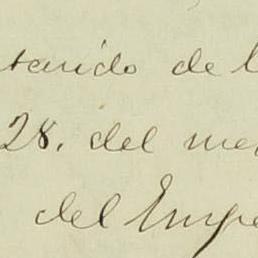 tenido de l
28. del me
del Empe